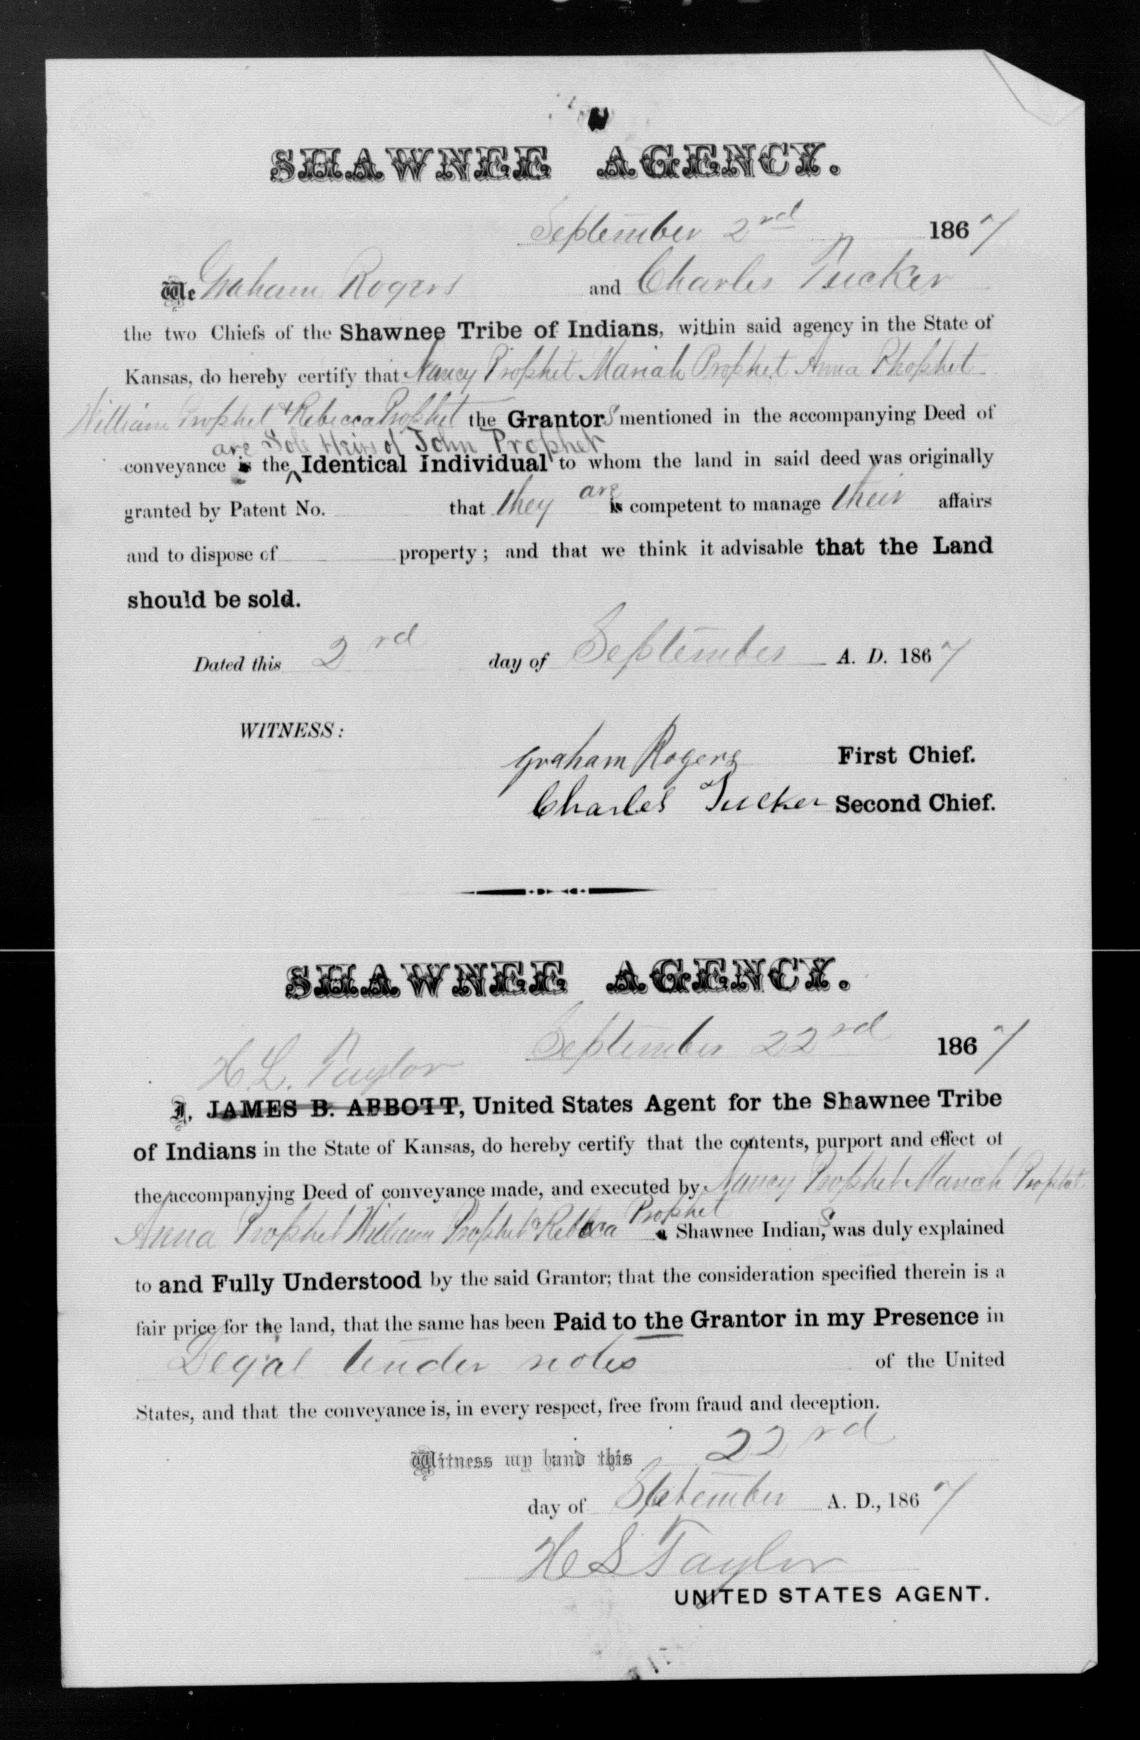 SHAWNEE AGENCY.
September 2nd 1867
We Graham Rogers and Charles Tucker
the two Chiefs of the Shawnee Tribe of Indians, within said agency in the State of
Kansas, do hereby certify that Nancy Prophet Mariah Prophet Anna Phophet
William Prophet & Rebecca Prophet the Grantors mentioned in the accompanying Deed of
are Sole Heirs of John Prophet
conveyance is the ^ Identical Individual to whom the land in said deed was originally
granted by Patent No. that they are is competent to manage their affairs
and to dispose of property; and that we think it advisable that the Land
should be sold.
Dated this 2rd day of September A. D. 1867
WITNESS:
Graham Rogers First Chief.
Charles Tucker Second Chief.
SHAWNEE AGENCY.
September 22rd 1867
H L. Taylor
I, JAMES B. ABBOTT, United States Agent for the Shawnee Tribe
of Indians in the State of Kansas, do hereby certify that the contents, purport and effect of
the accompanying Deed of conveyance made, and executed by Nancy Prophet Mariah Prophet
Anna Prophet William Prophet & Rebbca Prophet a Shawnee Indians, was duly explained
to and Fully Understood by the said Grantor; that the consideration specified therein is a
fair price for the land, that the same has been Paid to the Grantor in my Presence in
Legal tender notes of the United
States, and that the conveyance is, in every respect, free from fraud and deception.
Witness my hand this 22rd
day of September A. D., 1867
H L Taylor
UNITED STATES AGENT.